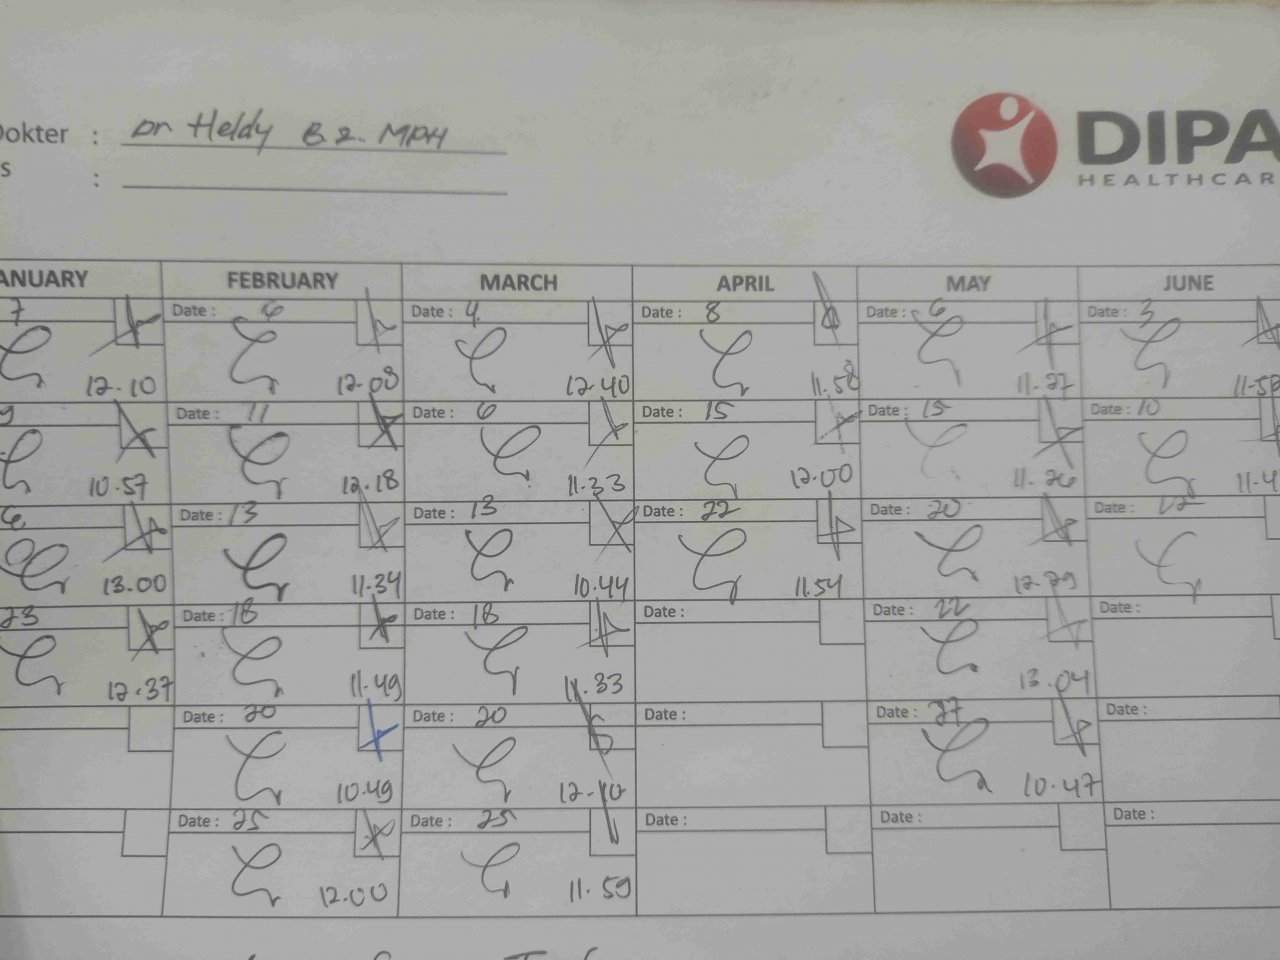 Dokter : Dr Heldy B 2. MPH
s :
DIPA
HEALTHCAR
ANUARY FEBRUARY MARCH APRIL MAY JUNE
7 Date : 6 Date : 4 Date : 8 Date : 6 Date : 3
12.10 12.08 12.40 11.58 11.27 11.58
9 Date : 11 Date : 6 Date : 15 Date : 15 Date : 10
10.57 12.18 11.33 12.00 11.26 11.4
6 Date : 13 Date : 13 Date : 22 Date : 20 Date : 12
13.00 11.34 10.44 11.54 12.29
23 Date : 18 Date : 18 Date : Date : 22 Date :
12.37 11.49 11.33 13.04
Date : 20 Date : 20 Date : Date : 27 Date :
10.49 12.10 10.47
Date : 25 Date : 25 Date : Date : Date :
12.00 11.59